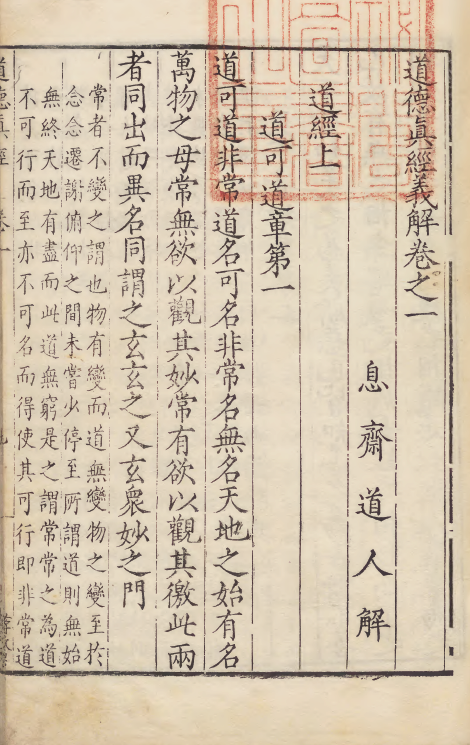 道德眞經義解卷之一
息齋道人解
道經上
道可道章第一
道可道非常道名可名非常名無名天地之始有名
萬物之母常無欲以觀其妙常有欲以觀其徼此兩
者同出而異名同謂之玄玄之又玄衆妙之門
常者不變之謂也物有變而道無變物之變至於
念念遷謝俯仰之間未嘗少停至所謂道則無始
無終天地有盡而此道無窮是之謂常常之為道
不可行而至亦不可名而得使其可行即非常道
道德眞經 卷一